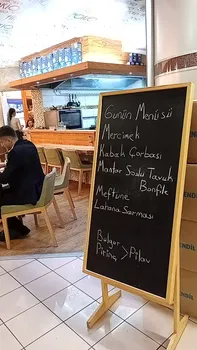 Günün Menüsü
Mercimek
Kabak Çorbası
Mantar Soslu Tavuk
Bonfile
Meftune
Lahana Sarması
Bulgur
Pirinç > Pilav